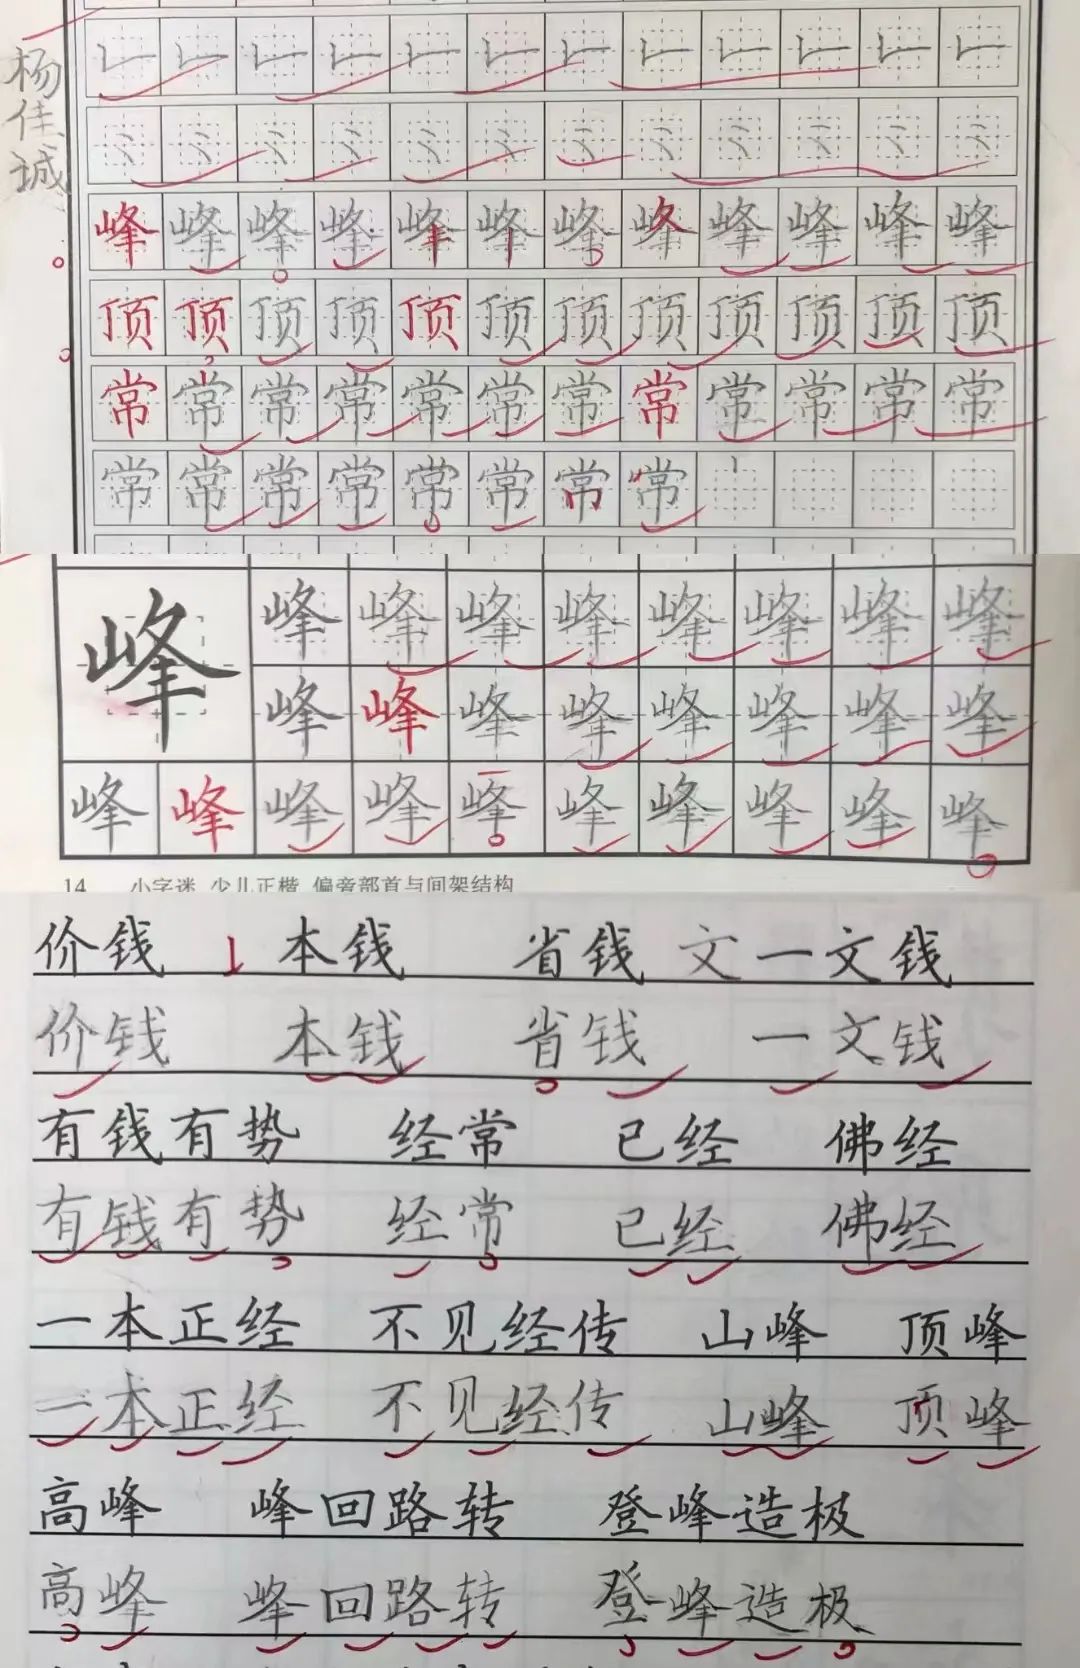 杨佳诚
峰峰峰峰峰峰峰峰峰峰峰峰
顶顶顶顶顶顶顶顶顶顶顶顶
常常常常常常常常常常常常
常常常常常常常常
峰峰峰峰峰峰峰峰峰
峰峰峰峰峰峰峰峰
峰峰峰峰峰峰峰峰峰峰
14 小字迷 少儿正楷 偏旁部首与间架结构
价钱 本钱 省钱 文一文钱
价钱 本钱 省钱 一文钱
有钱有势 经常 已经 佛经
有钱有势 经常 已经 佛经
一本正经 不见经传 山峰 顶峰
一本正经 不见经传 山峰 顶峰
高峰 峰回路转 登峰造极
高峰 峰回路转 登峰造极